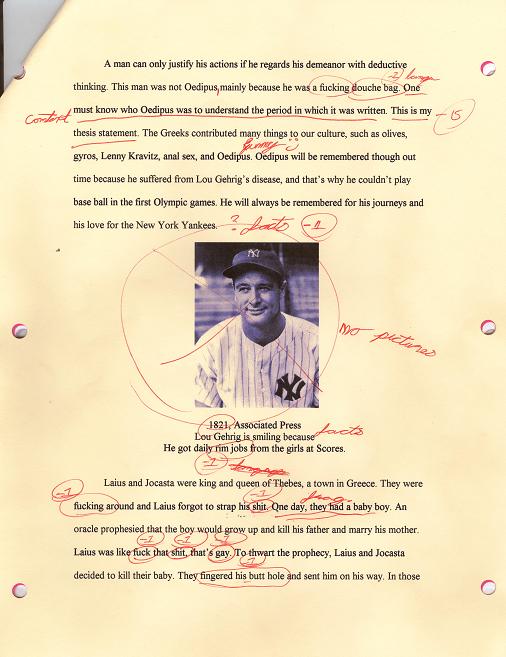 A man can only justify his actions if he regards his demeanor with deductive
-2 lang
thinking. This man was not Oedipus, mainly because he was a fucking douche bag. One
must know who Oedipus was to understand the period in which it was written. This is my
context
-15
thesis statement. The Greeks contributed many things to our culture, such as olives,
funny
gyros, Lenny Kravitz, anal sex, and Oedipus. Oedipus will be remembered though out
time because he suffered from Lou Gehrig's disease, and that's why he couldn't play
base ball in the first Olympic games. He will always be remembered for his journeys and
his love for the New York Yankees. ? facts -1
NY
No pictures
NY
1821, Associated Press
Lou Gehrig is smiling because facts
He got daily rim jobs from the girls at Scores.
-1
Laius and Jocasta were king and queen of Thebes, a town in Greece. They were
-1 -1 frag
fucking around and Laius forgot to strap his shit. One day, they had a baby boy. An
oracle prophesied that the boy would grow up and kill his father and marry his mother.
-1 -1 -1
Laius was like fuck that shit, that's gay. To thwart the prophecy, Laius and Jocasta
-1
decided to kill their baby. They fingered his butt hole and sent him on his way. In those